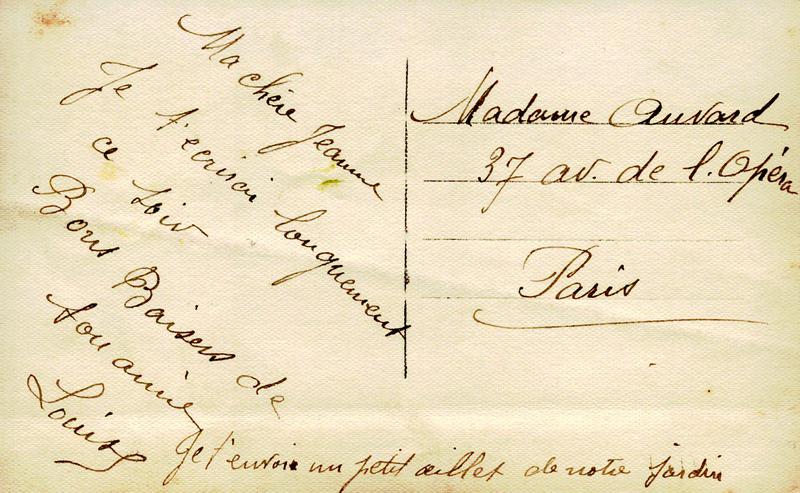 Ma chère Jeanne
Je t'ecrirai longuement
ce soir
Bons Baisers de
ton amie
Louise
Je t'envoie un petit œillet de notre jardin
Madame Auvard
37 av. de l. Opéra
Paris